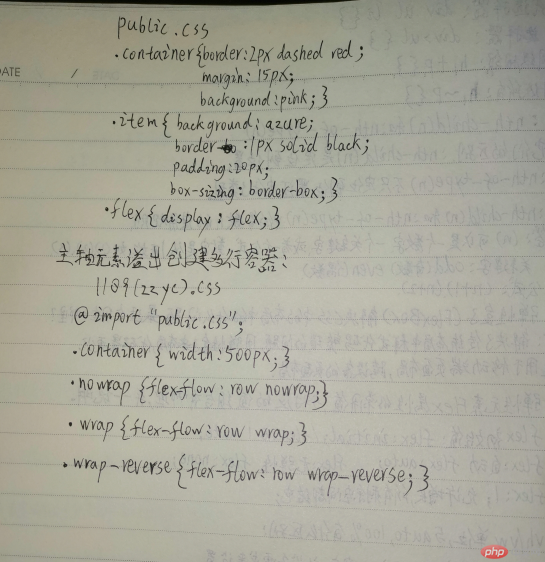 DATE /
public.css
.container{border:2px dashed red;
margin:15px;
background:pink;}
.item{background:azure;
border:1px solid black;
padding:20px;
box-sizing:border-box;}
.flex{display:flex;}
主轴元素溢出创建多行容器:
(zzyc).css
@import "public.css";
.container{width:500px;}
.nowrap{flex-flow:row nowrap;}
.wrap{flex-flow:row wrap;}
.wrap-reverse{flex-flow:row wrap-reverse;}
php